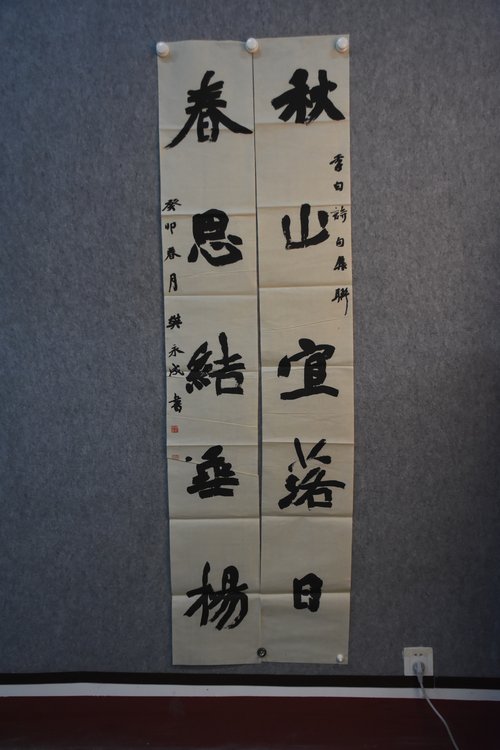 秋山宜落日
李白詩句集聯
春思結垂楊
癸卯春月 樊永成 書